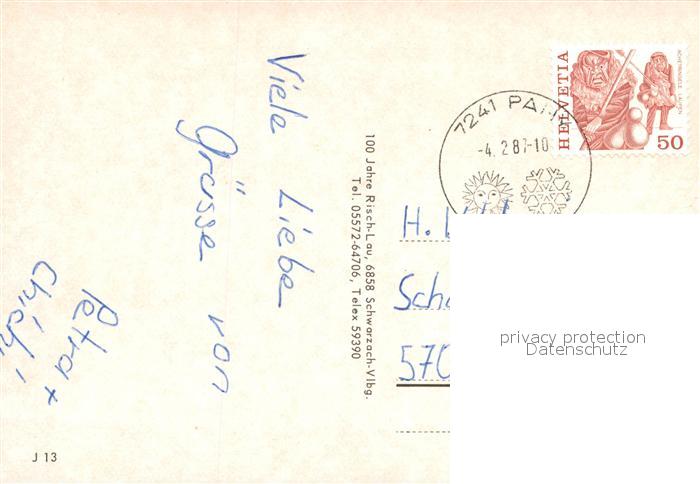 Viele Liebe
Grüsse von
Petra +
100 Jahre Risch-Lau, 6858 Schwarzach-Vlbg.
Tel. 05572-64706, Telex 59390
J 13
7241
-4. 2 87-10
HELVETIA
50
H.
570
privacy protection
Datenschutz